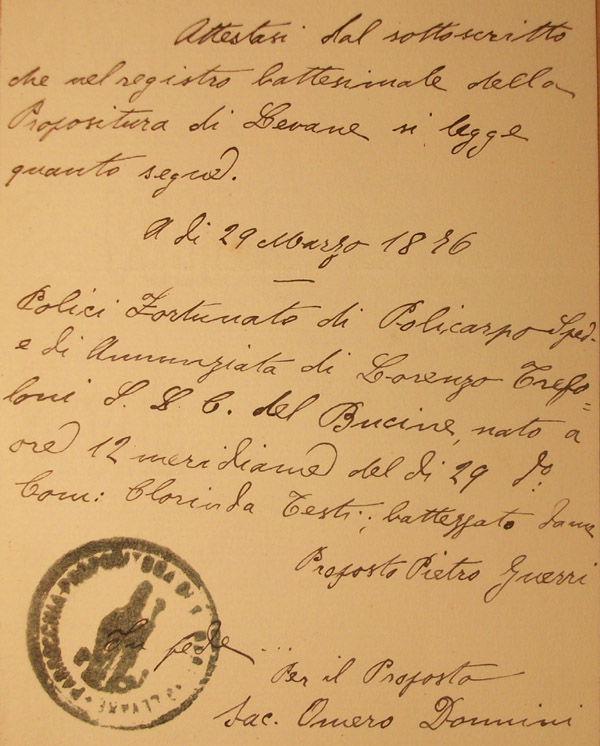 Attestasi dal sottoscritto
che nel registro battesimale della
Propositura di Levane si legge
quanto segue.
A di 29 Marzo 1876
Polici Fortunato di Policarpo Sped-
e di Annunziata di Lorenzo Trefo=
loni S. L. C. del Bucine, nato a
ore 12 meridiane del di 29 do.
Com: Clorinda Testi; battezzato da me
Proposto Pietro Guerri
In fede
Per il Proposto
Sac. Omero Donnini
PARROCCHIA PROPOSITURA DI LEVANE